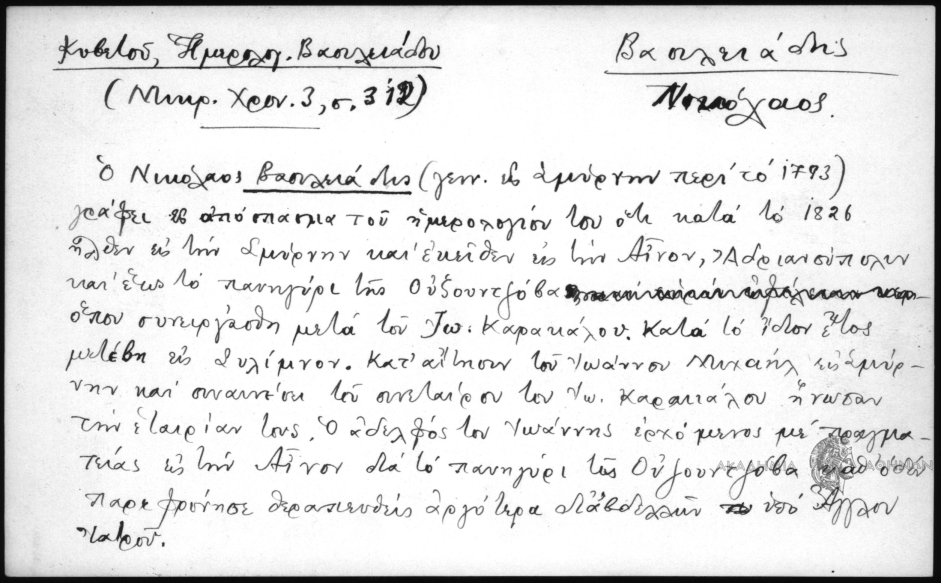 Κυβετοῦ, Ἡμερολογ. Βασιλειάδου
Βασιλειάδης
(Μικρ. Χρον. 3, σ. 312)
Νικόλαος.
Ὁ Νικόλαος Βασιλειάδης (γεν. εἰς Σμύρνην περί τό 1793)
γράφει εἰς ἀπόσπασμα τοῦ ἡμερολογίου του ὅτι κατά τό 1826
ἦλθεν εἰς τήν Σμύρνην καί ἐκεῖθεν εἰς τήν Αἶνον, Ἀδριανούπολιν
καί ἕως τό πανηγύρι τῆς Οὐζουντζόβα
ὅπου συνειργάσθη μετά τοῦ Ἰω. Καρακάλου. Κατά τό ἴδιον ἔτος
μετέβη εἰς Συλίμνον. Κατ' αἴτησιν τοῦ Ἰωάννου Μιχαήλ εἰς Σμύρ-
νην καί συναινέσει τοῦ συνεταίρου του Ἰω. Καρακάλου ἥνωσαν
τήν ἑταιρίαν τους. Ὁ ἀδελφός του Ἰωάννης ἐρχόμενος μέ πραγμα-
τείας εἰς τήν Αἶνον διά τό πανηγύρι τῆς Οὐζουντζόβα καθ' ὁδόν
παρεφρόνησε θεραπευθείς ἀργότερα διά βδελλῶν ὑπό Ἄγγλου
ἰατροῦ.
ΑΚΑΔΗΜΙΑ ΑΘΗΝΩΝ